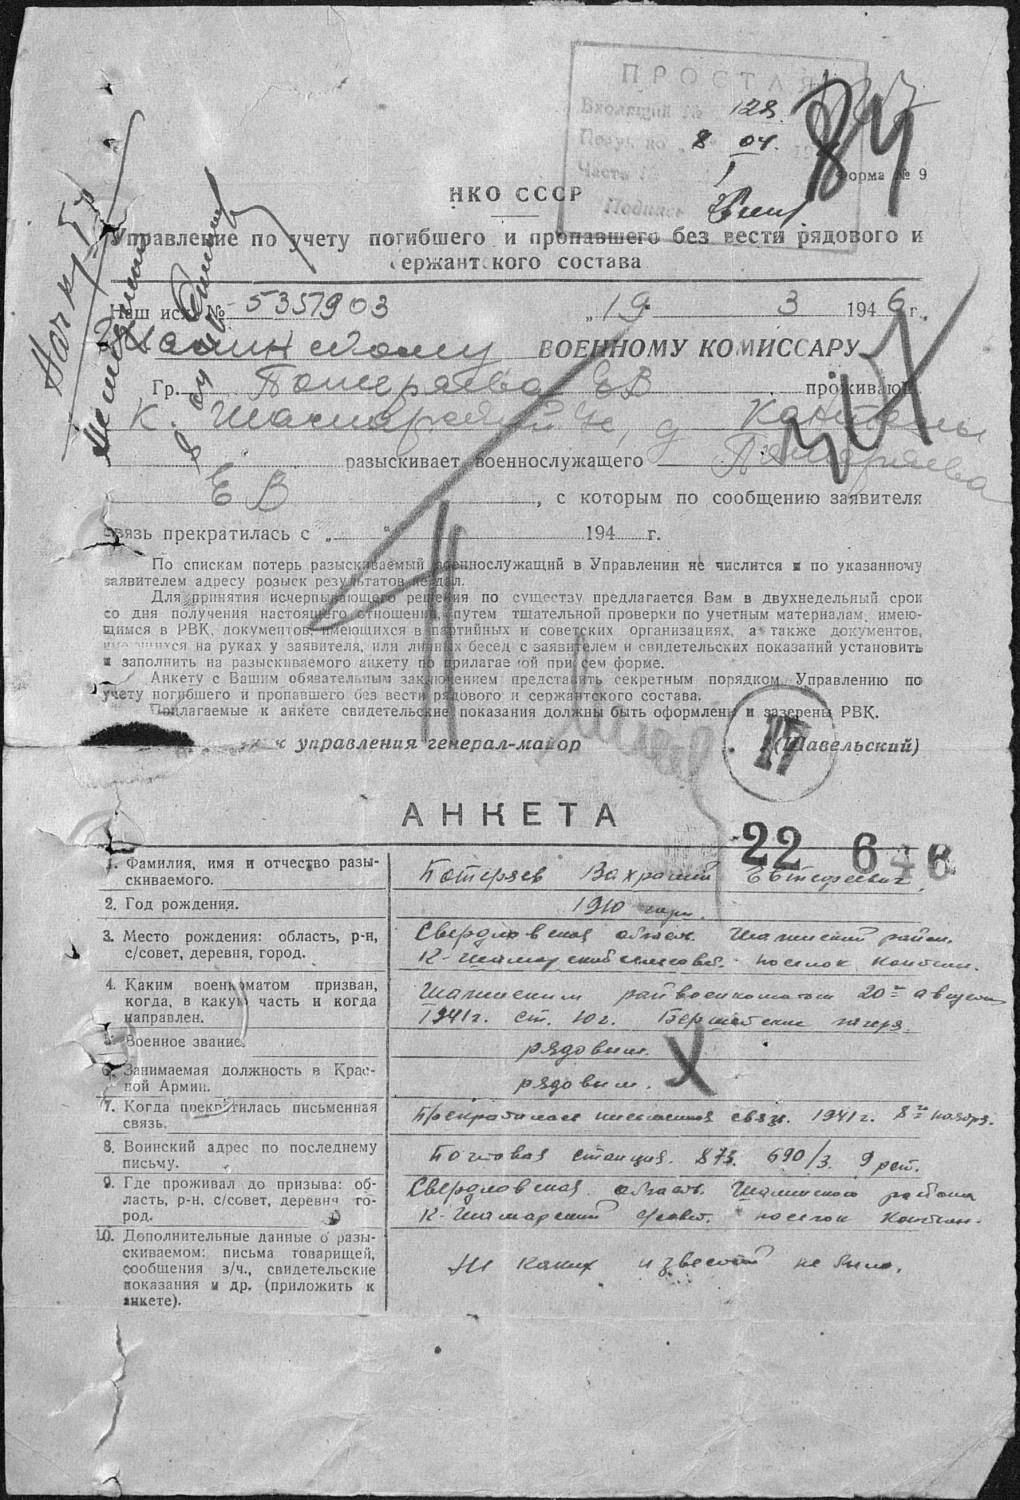 ПРОСТАЯ
Входящий № 128
8 04.
Часть №
Подпись
84
Форма № 9
НКО СССР
Управление по учету погибшего и пропавшего без вести рядового и
сержантского состава
Наш исх. № 5351903 „19 3 1946 г.
ВОЕННОМУ КОМИССАРУ
Гр. Потеряева ЕВ проживающ
К. Шамарский
разыскивает военнослужащего
ЕВ, с которым по сообщению заявителя
связь прекратилась с „ “ 194 г.
По спискам потерь разыскиваемый военнослужащий в Управлении не числится и по указанному
заявителем адресу розыск результатов не дал.
Для принятия исчерпывающего решения по существу предлагается Вам в двухнедельный срок
со дня получения настоящего отношения, путем тщательной проверки по учетным материалам, имею-
щимся в РВК, документов, имеющихся в партийных и советских организациях, а также документов,
имеющихся на руках у заявителя, или личных бесед с заявителем и свидетельских показаний установить
и заполнить на разыскиваемого анкету по прилагаемой при сем форме.
Анкету с Вашим обязательным заключением представить секретным порядком Управлению по
учету погибшего и пропавшего без вести рядового и сержантского состава.
Прилагаемые к анкете свидетельские показания должны быть оформлены и заверены РВК.
управления генерал-майор (Шавельский)
17
АНКЕТА
22 6 46
1. Фамилия, имя и отчество разы-
скиваемого.
Потеряев
2. Год рождения.
1910
3. Место рождения: область, р-н,
с/совет, деревня, город.
Свердловская область Шалинский район.
К-Шамарский сельсовет. поселок
4. Каким военкоматом призван,
когда, в какую часть и когда
направлен.
Шалинским райвоенкоматом 20го августа
1941 г. ст. Юг. Бершетские лагеря.
5. Военное звание.
рядовым.
6. Занимаемая должность в Крас-
ной Армии.
рядовым.
7. Когда прекратилась письменная
связь.
Прекратилась письменная связь. 1941 г. 8го ноября.
8. Воинский адрес по последнему
письму.
Почтовая станция. 873. 690/3. 9 рот.
9. Где проживал до призыва: об-
ласть, р-н, с/совет, деревня го-
род.
Свердловская область Шалинского района
К-Шамарский с/совет. поселок
10. Дополнительные данные о разы-
скиваемом: письма товарищей,
сообщения з/ч., свидетельские
показания и др. (приложить к
анкете).
Ни каких известий не было.